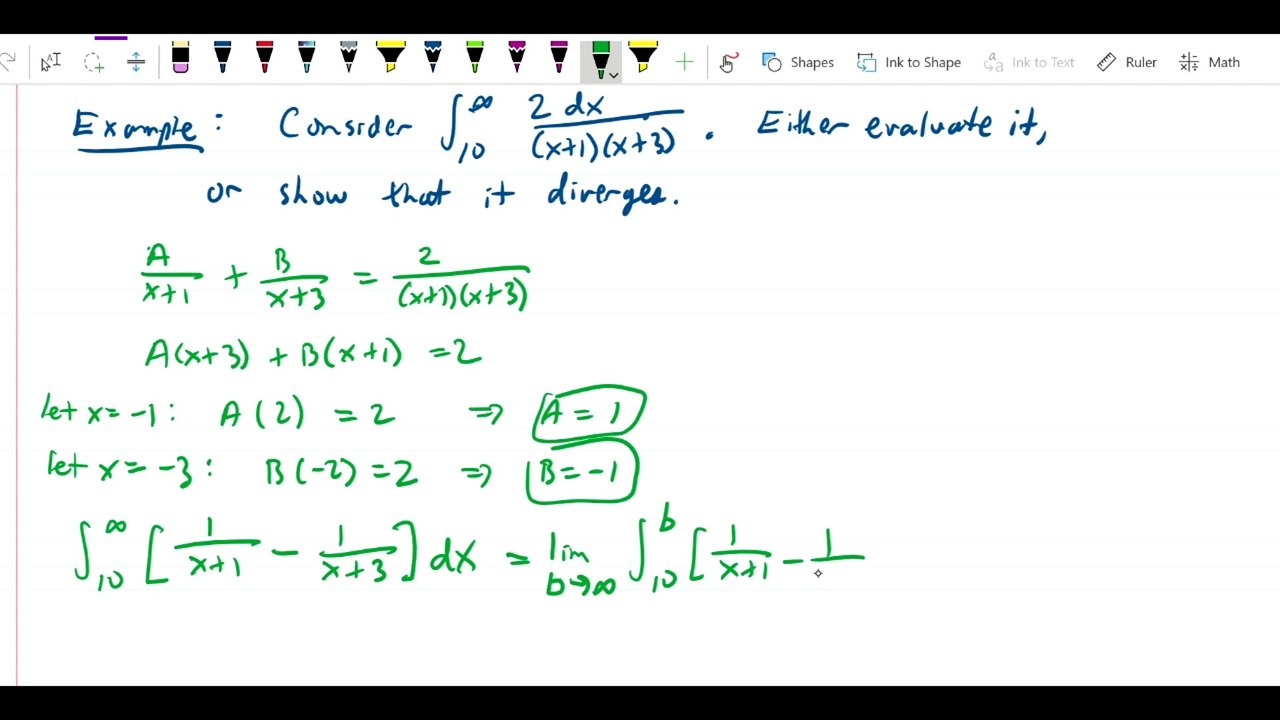 Shapes Ink to Shape Ink to Text Ruler Math
Example: Consider ∫₁₀^∞ 2 dx / (x+1)(x+3) . Either evaluate it,
or show that it diverges.
A/(x+1) + B/(x+3) = 2/((x+1)(x+3))
A(x+3) + B(x+1) = 2
let x = -1 : A(2) = 2 ⇒ A = 1
let x = -3 : B(-2) = 2 ⇒ B = -1
∫₁₀^∞ [1/(x+1) - 1/(x+3)] dx = lim b→∞ ∫₁₀^b [1/(x+1) - 1/